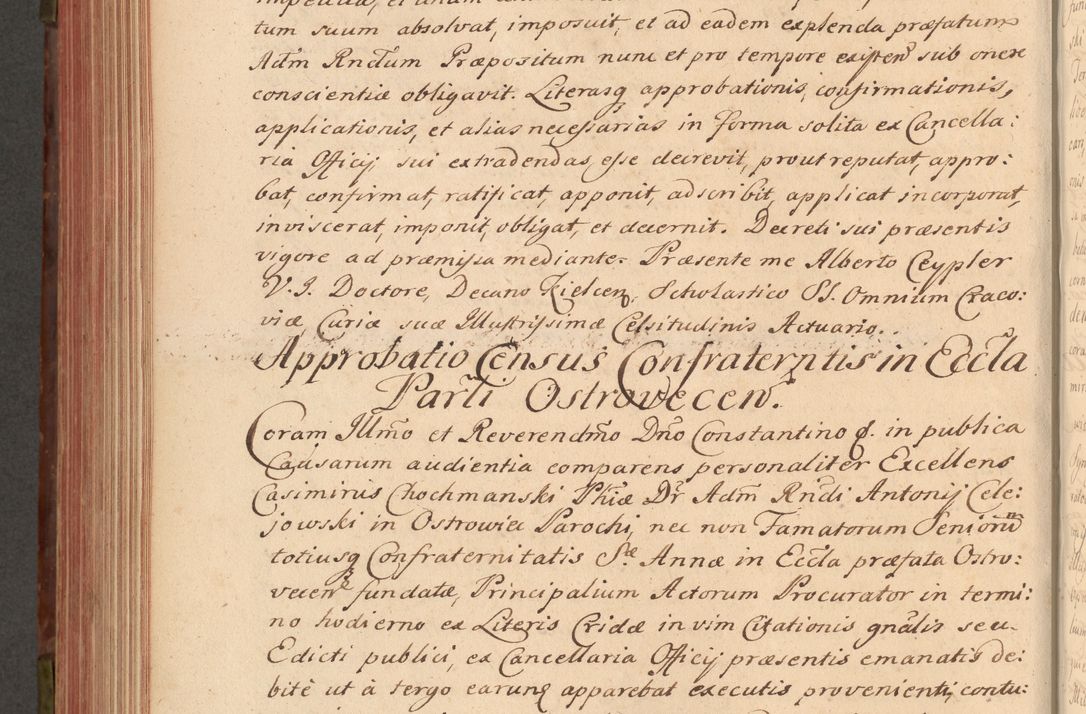 tum suum absolvat, imposuit, et ad eadem explenda præfatum
Adm̃ Rndum Præpositum nunc et pro tempore existeñ sub onere
conscientiæ obligavit. Literasq approbationis, confirmationis,
applicationis, et alias necessarias in forma solita ex Cancella:
ria Officij sui extradendas, esse decrevit, prout reputat, appro:
bat, confirmat, ratificat, apponit, adscribit, applicat incorporat,
inviscerat, imponit, obligat, et decernit. Decreti sui præsentis
vigore ad præmissa mediante. Præsente me Alberto Ceypler
V. J. Doctore, Decano Kielceñ, Scholastico SS. Omnium Craco:
viæ, Curiæ suæ Illustrissimæ Celsitudinis Actuario.
Approbatio Census Confraterntis in Eccla
Parli Ostroveceñ.
Coram Illm̃o et Reverendm̃o Dño Constantino &. in publica
Causarum audientia comparens personaliter Excellens
Casimirus Chochmanski Phiæ Dr Adm̃ Rñdi Antonij Cele:
jowski in Ostrowiec Parochi, nec non Famatorum Seniorũ
totiusq Confraternitatis Stæ Annæ in Eccla præfata Ostro:
veceñ fundatæ, Principalium Actorum Procurator in termi:
no hodierno ex Literis Cridæ in vim Citationis gnãlis seu
Edicti publici, ex Cancellaria Officij præsentis emanatis de:
bitè ut à tergo earunq apparebat executis provenienti, contu: